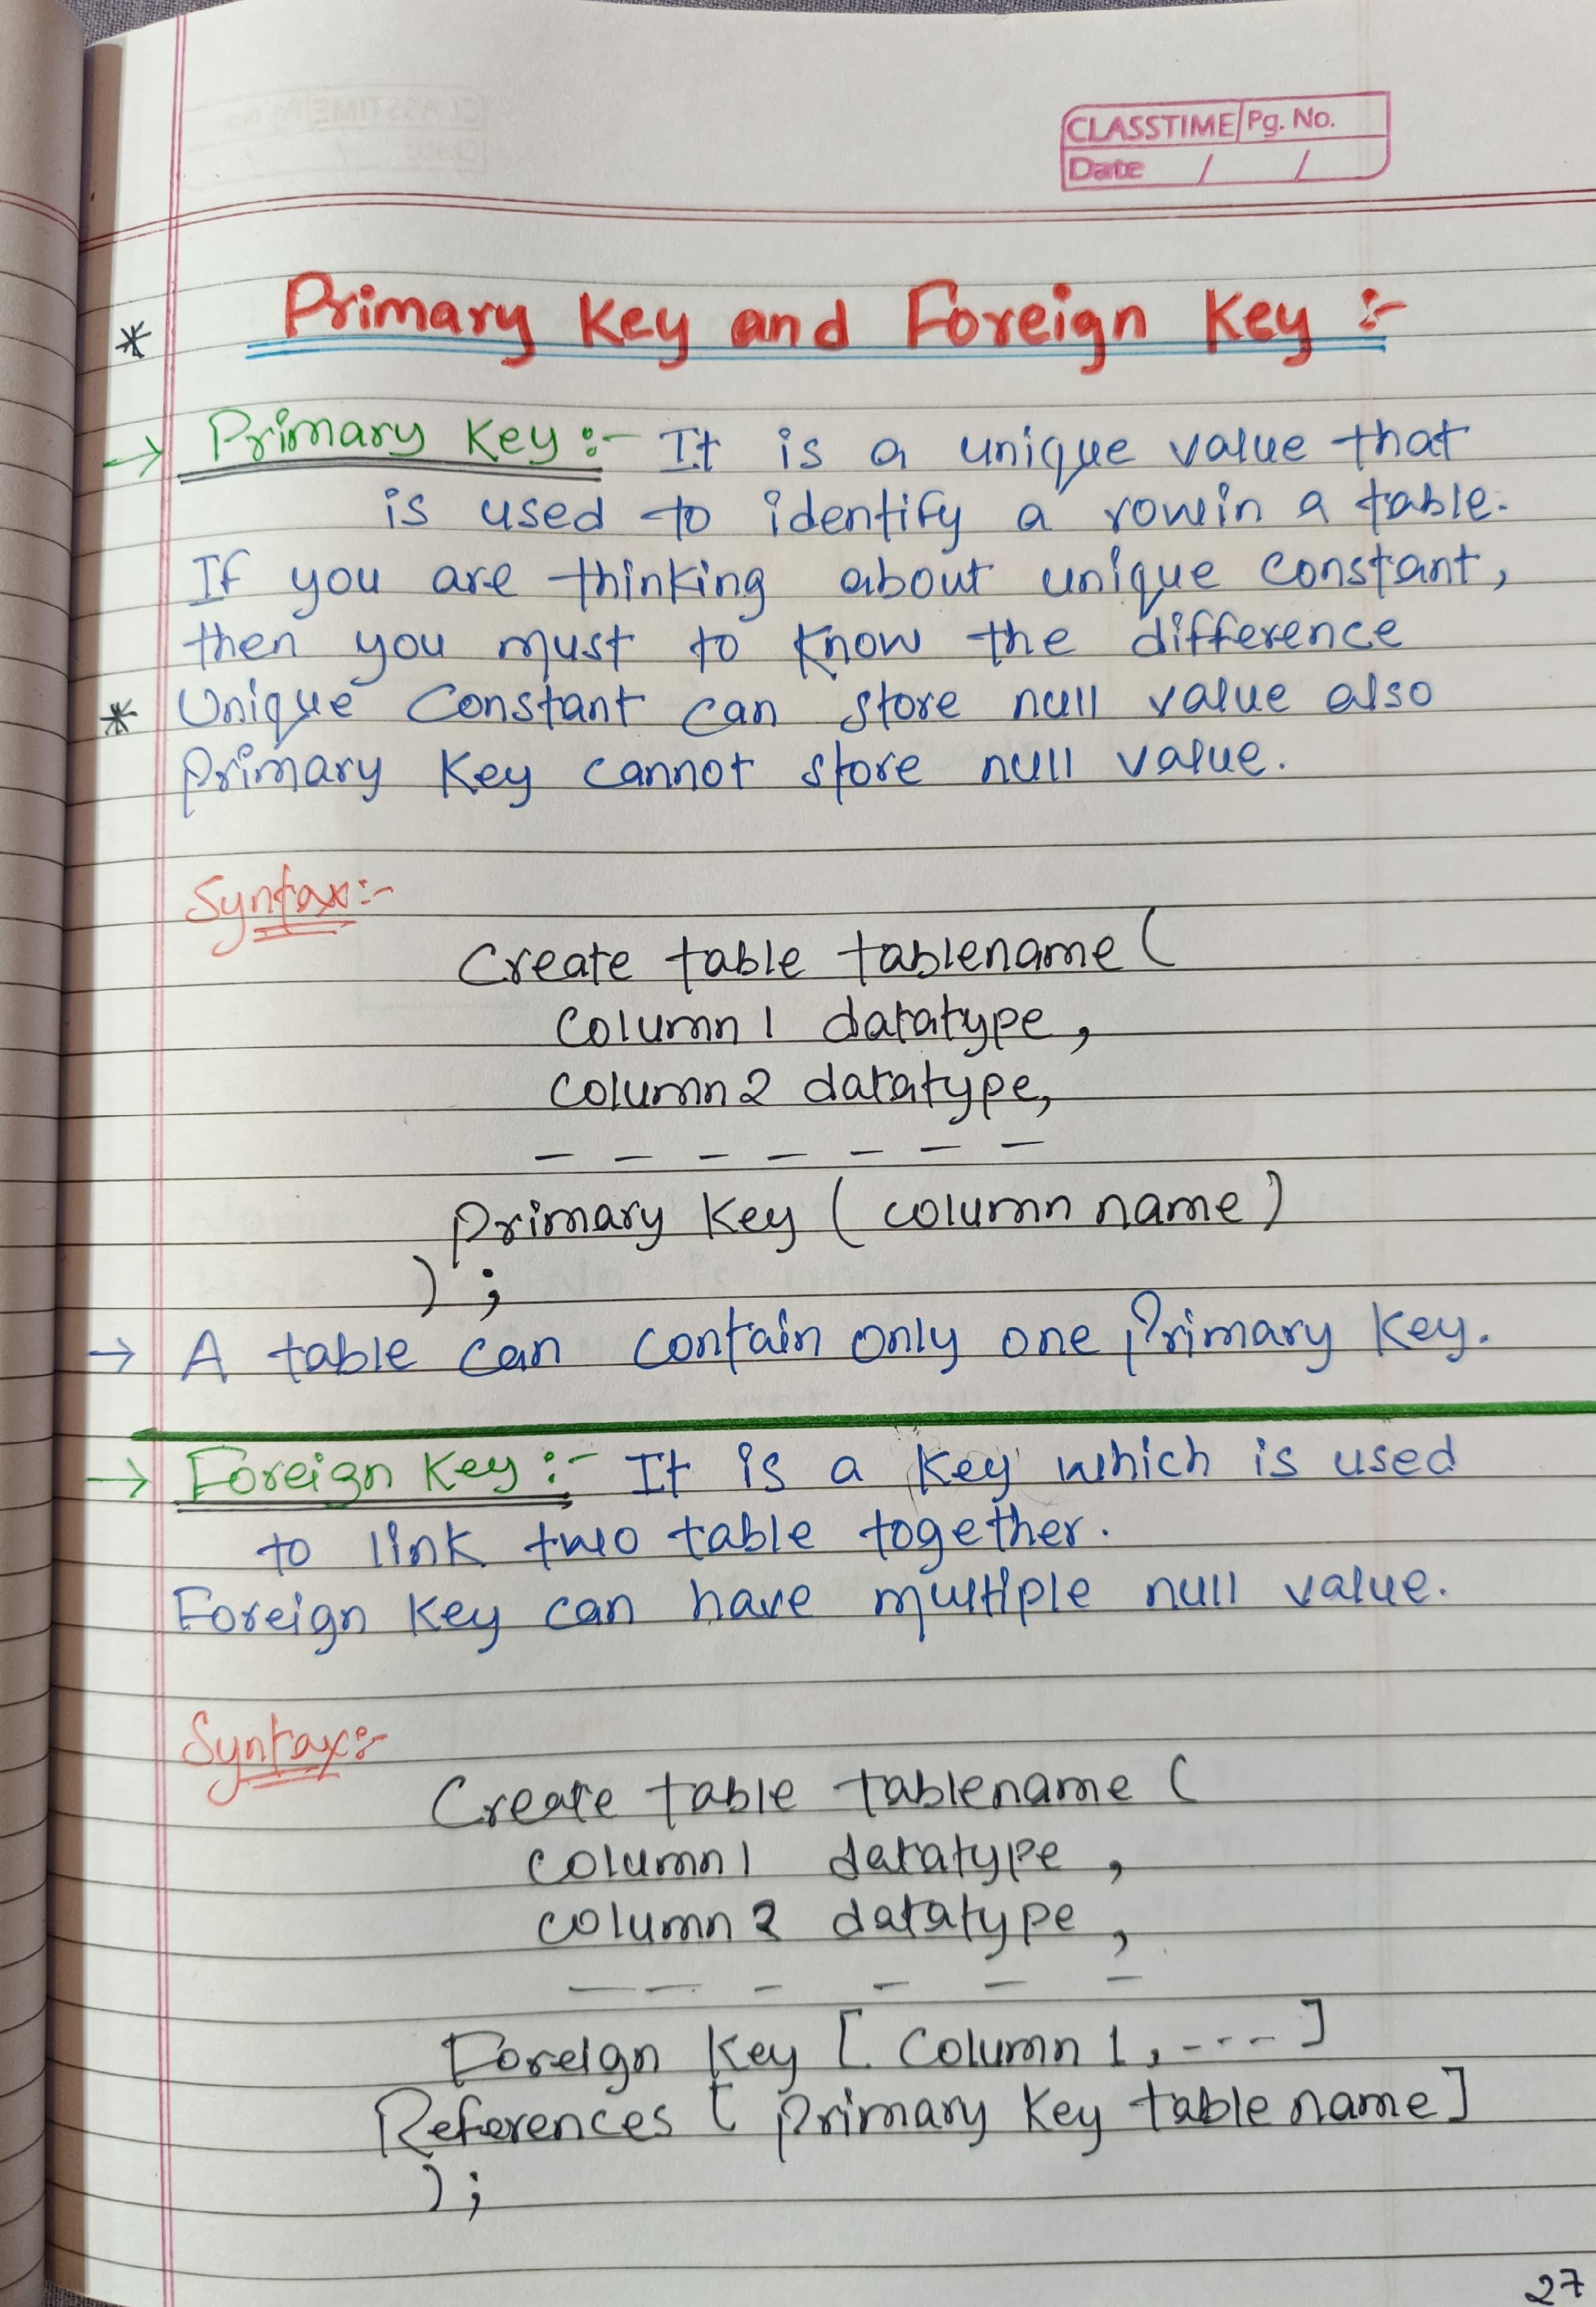 CLASSTIME Pg. No.
Date / /
* Primary Key and Foreign Key :-
→ Primary Key :- It is a unique value that
is used to identify a row in a table.
If you are thinking about unique constant,
then you must to know the difference
* Unique Constant can store null value also
Primary Key cannot store null value.
Syntax:-
Create table tablename (
Column 1 datatype,
Column 2 datatype,
- - - - - - -
Primary Key ( column name )
) ;
→ A table can contain only one Primary Key.
→ Foreign Key :- It is a Key which is used
to link two table together.
Foreign Key can have multiple null value.
Syntax:-
Create table tablename (
column 1 datatype ,
column 2 datatype ,
- - - - - -
Foreign Key [ Column 1, ---- ]
References [ Primary Key table name ]
) ;
27